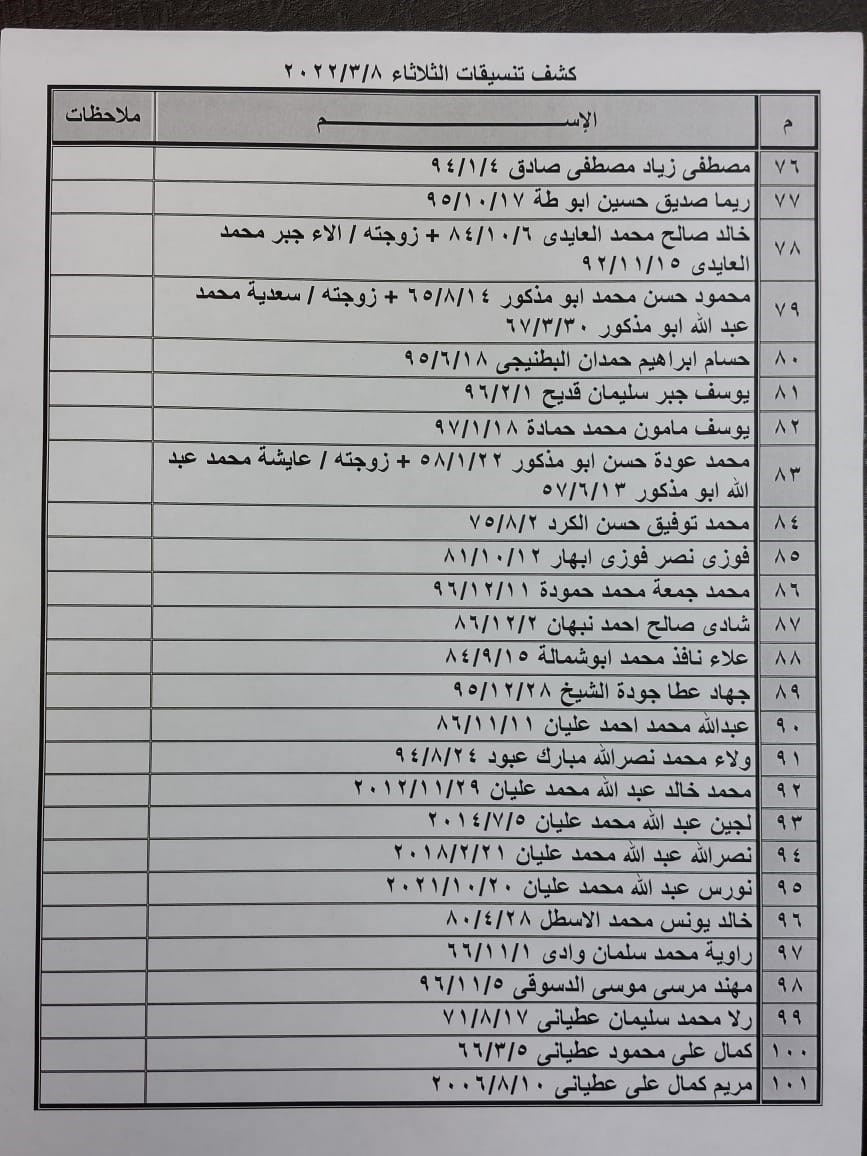 كشف تنسيقات الثلاثاء ٢٠٢٢/٣/٨
م الإســـــــم ملاحظات
٧٦ مصطفى زياد مصطفى صادق ٩٤/١/٤
٧٧ ريما صديق حسين ابو طة ٩٥/١٠/١٧
٧٨ خالد صالح محمد العايدى ٨٤/١٠/٦ + زوجته / الاء جبر محمد
العايدى ٩٢/١١/١٥
٧٩ محمود حسن محمد ابو مذكور ٦٥/٨/١٤ + زوجته / سعدية محمد
عبد الله ابو مذكور ٦٧/٣/٣٠
٨٠ حسام ابراهيم حمدان البطنيجى ٩٥/٦/١٨
٨١ يوسف جبر سليمان قديح ٩٦/٢/١
٨٢ يوسف مامون محمد حمادة ٩٧/١/١٨
٨٣ محمد عودة حسن ابو مذكور ٥٨/١/٢٢ + زوجته / عايشة محمد عبد
الله ابو مذكور ٥٧/٦/١٣
٨٤ محمد توفيق حسن الكرد ٧٥/٨/٢
٨٥ فوزى نصر فوزى ابهار ٨١/١٠/١٢
٨٦ محمد جمعة محمد حمودة ٩٦/١٢/١١
٨٧ شادى صالح احمد نبهان ٨٦/١٢/٢
٨٨ علاء نافذ محمد ابوشمالة ٨٤/٩/١٥
٨٩ جهاد عطا جودة الشيخ ٩٥/١٢/٢٨
٩٠ عبدالله محمد احمد عليان ٨٦/١١/١١
٩١ ولاء محمد نصرالله مبارك عبود ٩٤/٨/٢٤
٩٢ محمد خالد عبد الله محمد عليان ٢٠١٢/١١/٢٩
٩٣ لجين عبد الله محمد عليان ٢٠١٤/٧/٥
٩٤ نصرالله عبد الله محمد عليان ٢٠١٨/٢/٢١
٩٥ نورس عبد الله محمد عليان ٢٠٢١/١٠/٢٠
٩٦ خالد يونس محمد الاسطل ٨٠/٤/٢٨
٩٧ راوية محمد سلمان وادى ٦٦/١١/١
٩٨ مهند مرسى موسى الدسوقى ٩٦/١١/٥
٩٩ رلا محمد سليمان عطيانى ٧١/٨/١٧
١٠٠ كمال على محمود عطيانى ٦٦/٣/٥
١٠١ مريم كمال على عطيانى ٢٠٠٦/٨/١٠